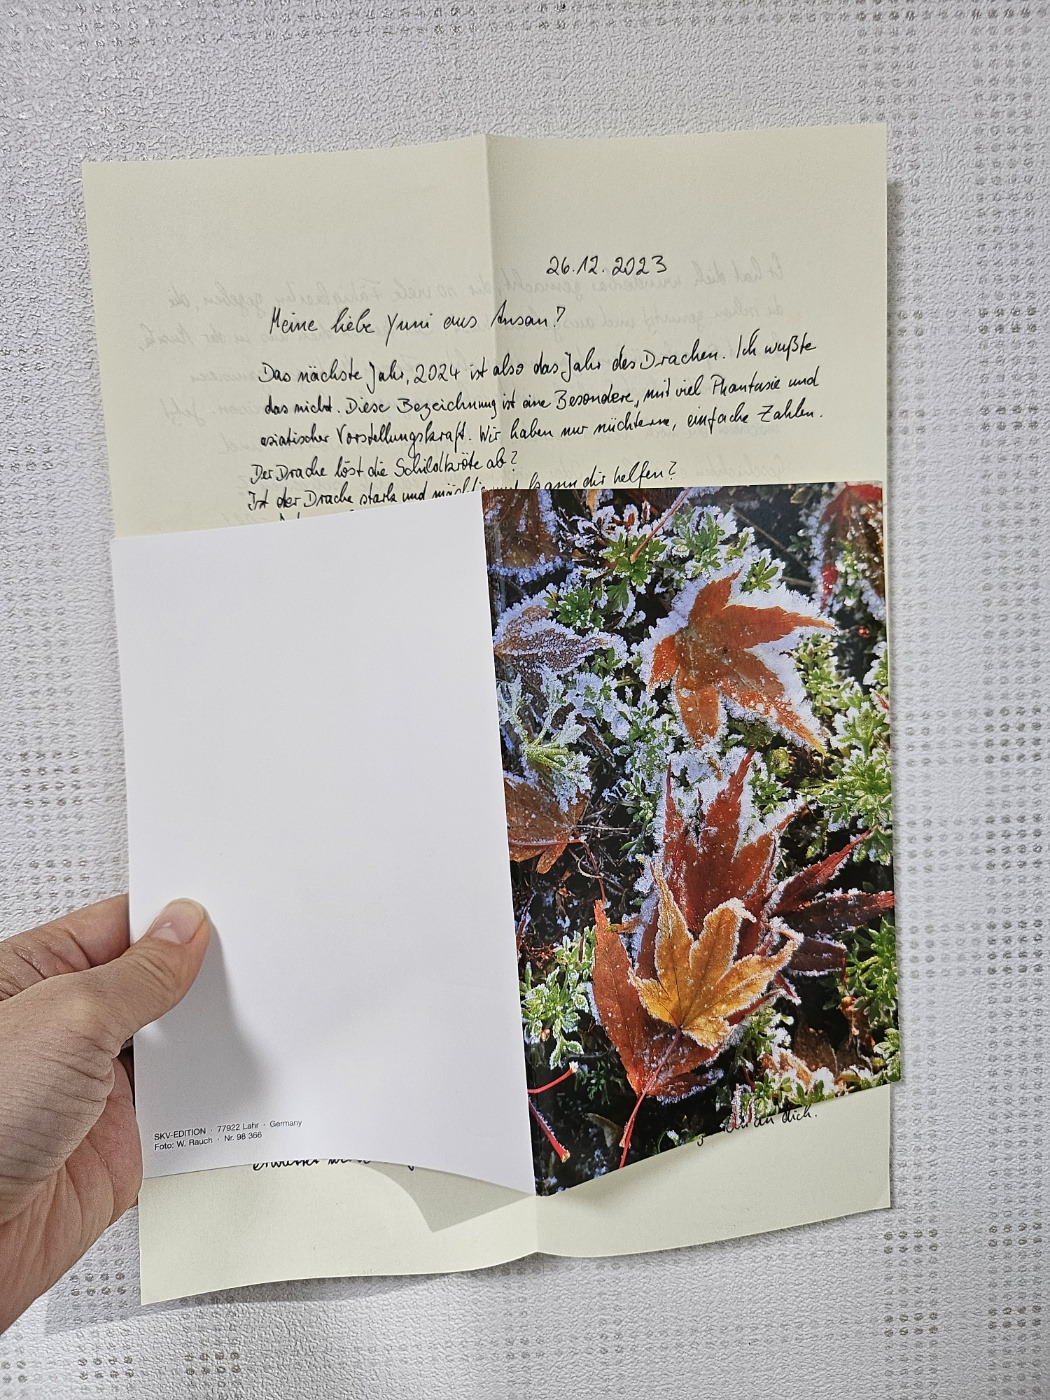 26.12.2023
Meine liebe Yumi aus Ansan?
Das nächste Jahr, 2024 ist also das Jahr des Drachen. Ich wußte
das nicht. Diese Bezeichnung ist eine Besondere, mit viel Phantasie und
asiatischer Vorstellungskraft. Wir haben nur nüchterne, einfache Zahlen.
Der Drache löst die Schildkröte ab?
Ist der Drache stark und kann dir helfen?
an dich.
SKV-EDITION · 77922 Lahr · Germany
Foto: W. Rauch · Nr. 98 366